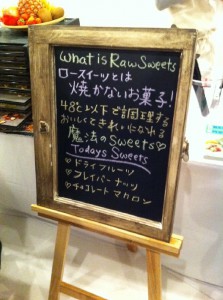 What is Raw Sweets
ロースイーツとは
焼かないお菓子!
48℃以下で調理する
おいしくてきれいになれる
魔法のSweets♡
Todays Sweets
♡ドライフルーツ
♡フレイバーナッツ
♡チョコレートマカロン